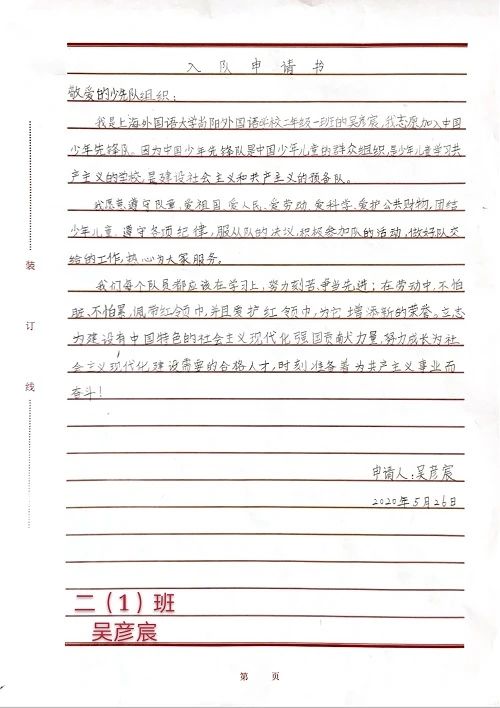 入队申请书
敬爱的少先队组织：
我是上海外国语大学尚阳外国语学校二年级一班的吴彦宸，我志愿加入中国
少年先锋队。因为中国少年先锋队是中国少年儿童的群众组织，是少年儿童学习共
产主义的学校，是建设社会主义和共产主义的预备队。
我愿意遵守队章，爱祖国、爱人民、爱劳动、爱科学、爱护公共财物，团结
少年儿童、遵守各项纪律，服从队的决议，积极参加队的活动，做好队交
给的工作，热心为大家服务。
我们每个队员都应该在学习上，努力刻苦、争当先进；在劳动中，不怕
脏、不怕累，佩带红领巾，并且爱护红领巾，为它增添新的荣誉。立志
为建设有中国特色的社会主义现代化强国贡献力量，努力成长为社
会主义现代化建设需要的合格人才，时刻准备着为共产主义事业而
奋斗！
申请人：吴彦宸
2020年5月26日
装
订
线
二（1）班
吴彦宸
第 页